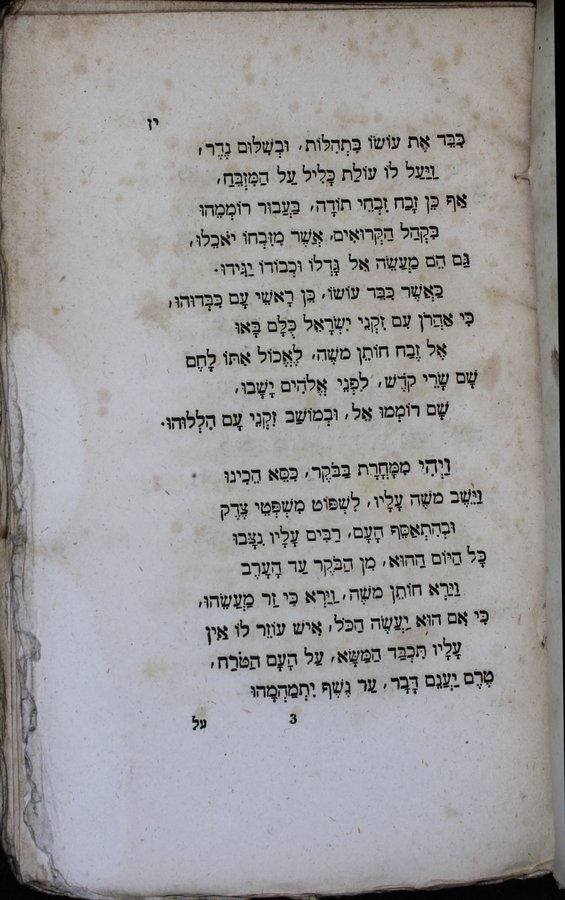 יז
כִּבֵּד אֶת עוֹשׂוֹ בִּתְהִלּוֹת, וּבְשִׁלּוּם נֶדֶר,
וַיַּעַל לוֹ עוֹלַת כָּלִיל עַל הַמִּזְבֵּחַ,
אַף כֵּן זָבַח זִבְחֵי תוֹדָה, בַּעֲבוּר רוֹמְמֵהוּ
בִּקְהַל הַקְּרוּאִים, אֲשֶׁר מִזִּבְחוֹ יֹאכֵלוּ,
גַּם הֵם מַעֲשֵׂה אֵל גָּדְלוֹ וּכְבוֹדוֹ יַגִּידוּ.
כַּאֲשֶׁר כִּבֵּד עוֹשׂוֹ, כֵּן רָאשֵׁי עָם כִּבְּדוּהוּ,
כִּי אַהֲרֹן עִם זִקְנֵי יִשְׂרָאֵל כֻּלָּם בָּאוּ
אֶל זֶבַח חוֹתֵן משֶׁה, לֶאֱכוֹל אִתּוֹ לָחֶם
שָׁם שָׂרֵי קֹדֶשׁ, לִפְנֵי אֱלֹהִים יָשָׁבוּ,
שָׁם רוֹמְמוּ אֵל, וּבְמוֹשַׁב זִקְנֵי עָם הִלְלוּהוּ.
וַיְהִי מִמָּחֳרָת בַּבֹּקֶר, כִּסֵּא הֵכִינוּ
וַיֵּשֶׁב משֶׁה עָלָיו, לִשְׁפּוֹט מִשְׁפְּטֵי צֶדֶק
וּבְהִתְאַסֵּף הָעָם, רַבִּים עָלָיו נִצָּבוּ
כָּל הַיּוֹם הַהוּא, מִן הַבֹּקֶר עַד הָעָרֶב
וַיַּרְא חוֹתֵן משֶׁה, וַיַּרְא כִּי זַר מַעֲשֵׂהוּ,
כִּי אִם הוּא יַעֲשֶׂה הַכֹּל, אִישׁ עוֹזֵר לוֹ אֵין
עָלָיו תִּכְבַּד הַמַּשָּׂא, עַל הָעָם הַטֹּרַח,
טֶרֶם יַעֲנֵם דָּבָר, עַד נֶשֶׁף יִתְמַהְמָהוּ
3
על